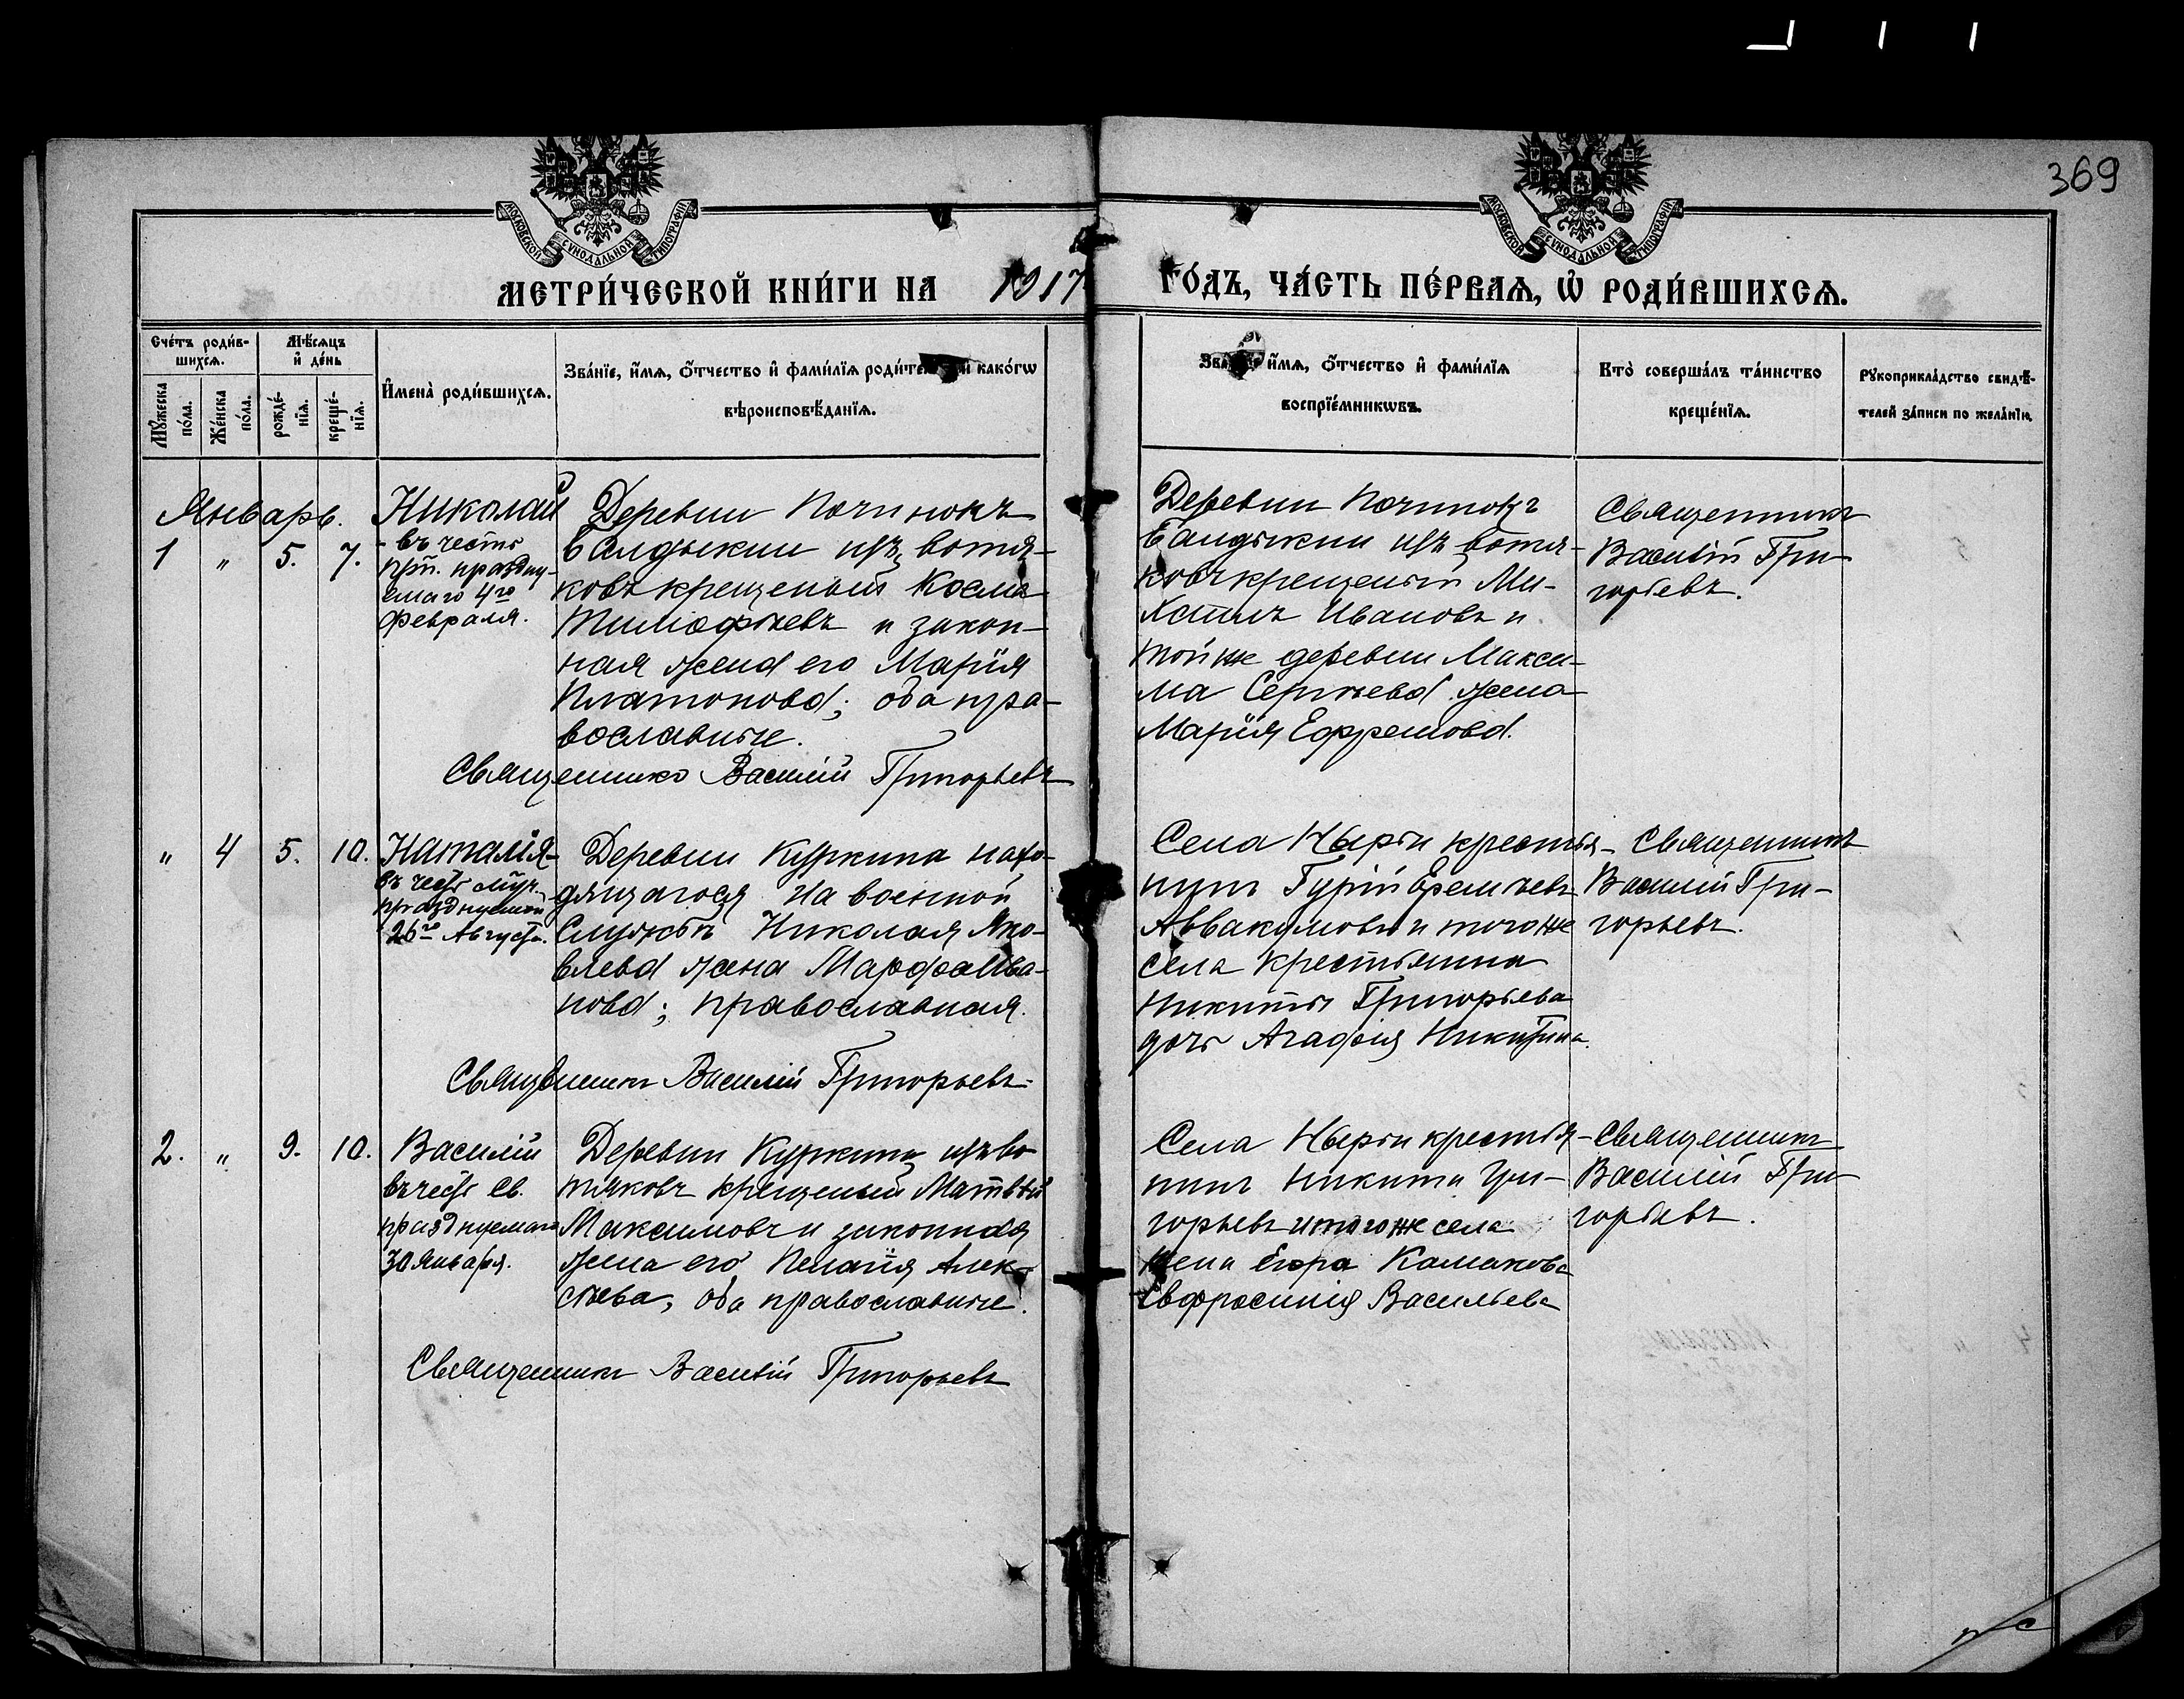 369
МОСКОВСКОЙ СУНОДАЛЬНОЙ ТИПОГРАФІИ
МОСКОВСКОЙ СУНОДАЛЬНОЙ ТИПОГРАФІИ
МЕТРИ́ЧЕСКОЙ КНИ́ГИ НА 1917 ГО́ДЪ, ЧА́СТЬ ПЕ́РВАЯ, Ѡ РОДИ́ВШИХСЯ.
Сче́тъ роди́в-
шихся.
Мѣ́сяцъ
и де́нь
Му́жеска
по́ла.
Же́нска
по́ла.
рожде́-
нїя.
креще́-
нїя.
Имена̀ роди́вшихся.
Зва́нїе, и́мя, о́тчество и фами́лїя роди́те и како́гѡ
вѣроисповѣ́данїя.
и́мя, о́тчество и фами́лїя
воспрїе́мникѡвъ.
Кто̀ соверша́лъ та́инство
креще́нїя.
Рукоприкла́дство свидѣ́-
телей за́писи по жела́нїю.
Январь.
1 " 5. 7.
Николай
въ честь
прп. праздну-
емаго 4го
Февраля.
Деревни Починокъ
Балдыкии изъ вотя-
ковъ крещеный Косма
Тимофѣевъ и закон-
ная жена его Марія
Платонова; оба пра-
вославные.
Священникъ Василій Григорьевъ
Деревни Починокъ
Балдыкии изъ вотя-
ковъ крещеный Ми-
хаилъ Ивановъ и
той же деревни Макси-
ма Сергѣева жена
Марія Ефремова.
Священникъ
Василій Гри-
горьевъ.
" 4 5. 10.
Наталія-
въ честь муч.
празднуемой
26го Августа.
Деревни Куркина нахо-
дящагося на военной
службѣ Николая Яко-
влева жена Марфа Ива-
нова; православная.
Священникъ Василій Григорьевъ
Села Нырьи крестья-
нинъ Гурій Еремѣевъ
Аввакумовъ и того же
села крестьянина
Никиты Григорьева
дочь Агафія Никитина.
Священникъ
Василій Гри-
горьевъ.
2. " 9. 10.
Василій
въ честь св.
празднуемаго
30 Января.
Деревни Куркина изъ во-
тяковъ крещеный Матвѣй
Максимовъ и законная
жена его Пелагія Алек-
сѣева, оба православные.
Священникъ Василій Григорьевъ
Села Нырьи крестья-
нинъ Никита Гри-
горьевъ и того же села
жена Егора Камакова
Евфросинія Васильева
Священникъ
Василій Гри-
горьевъ.